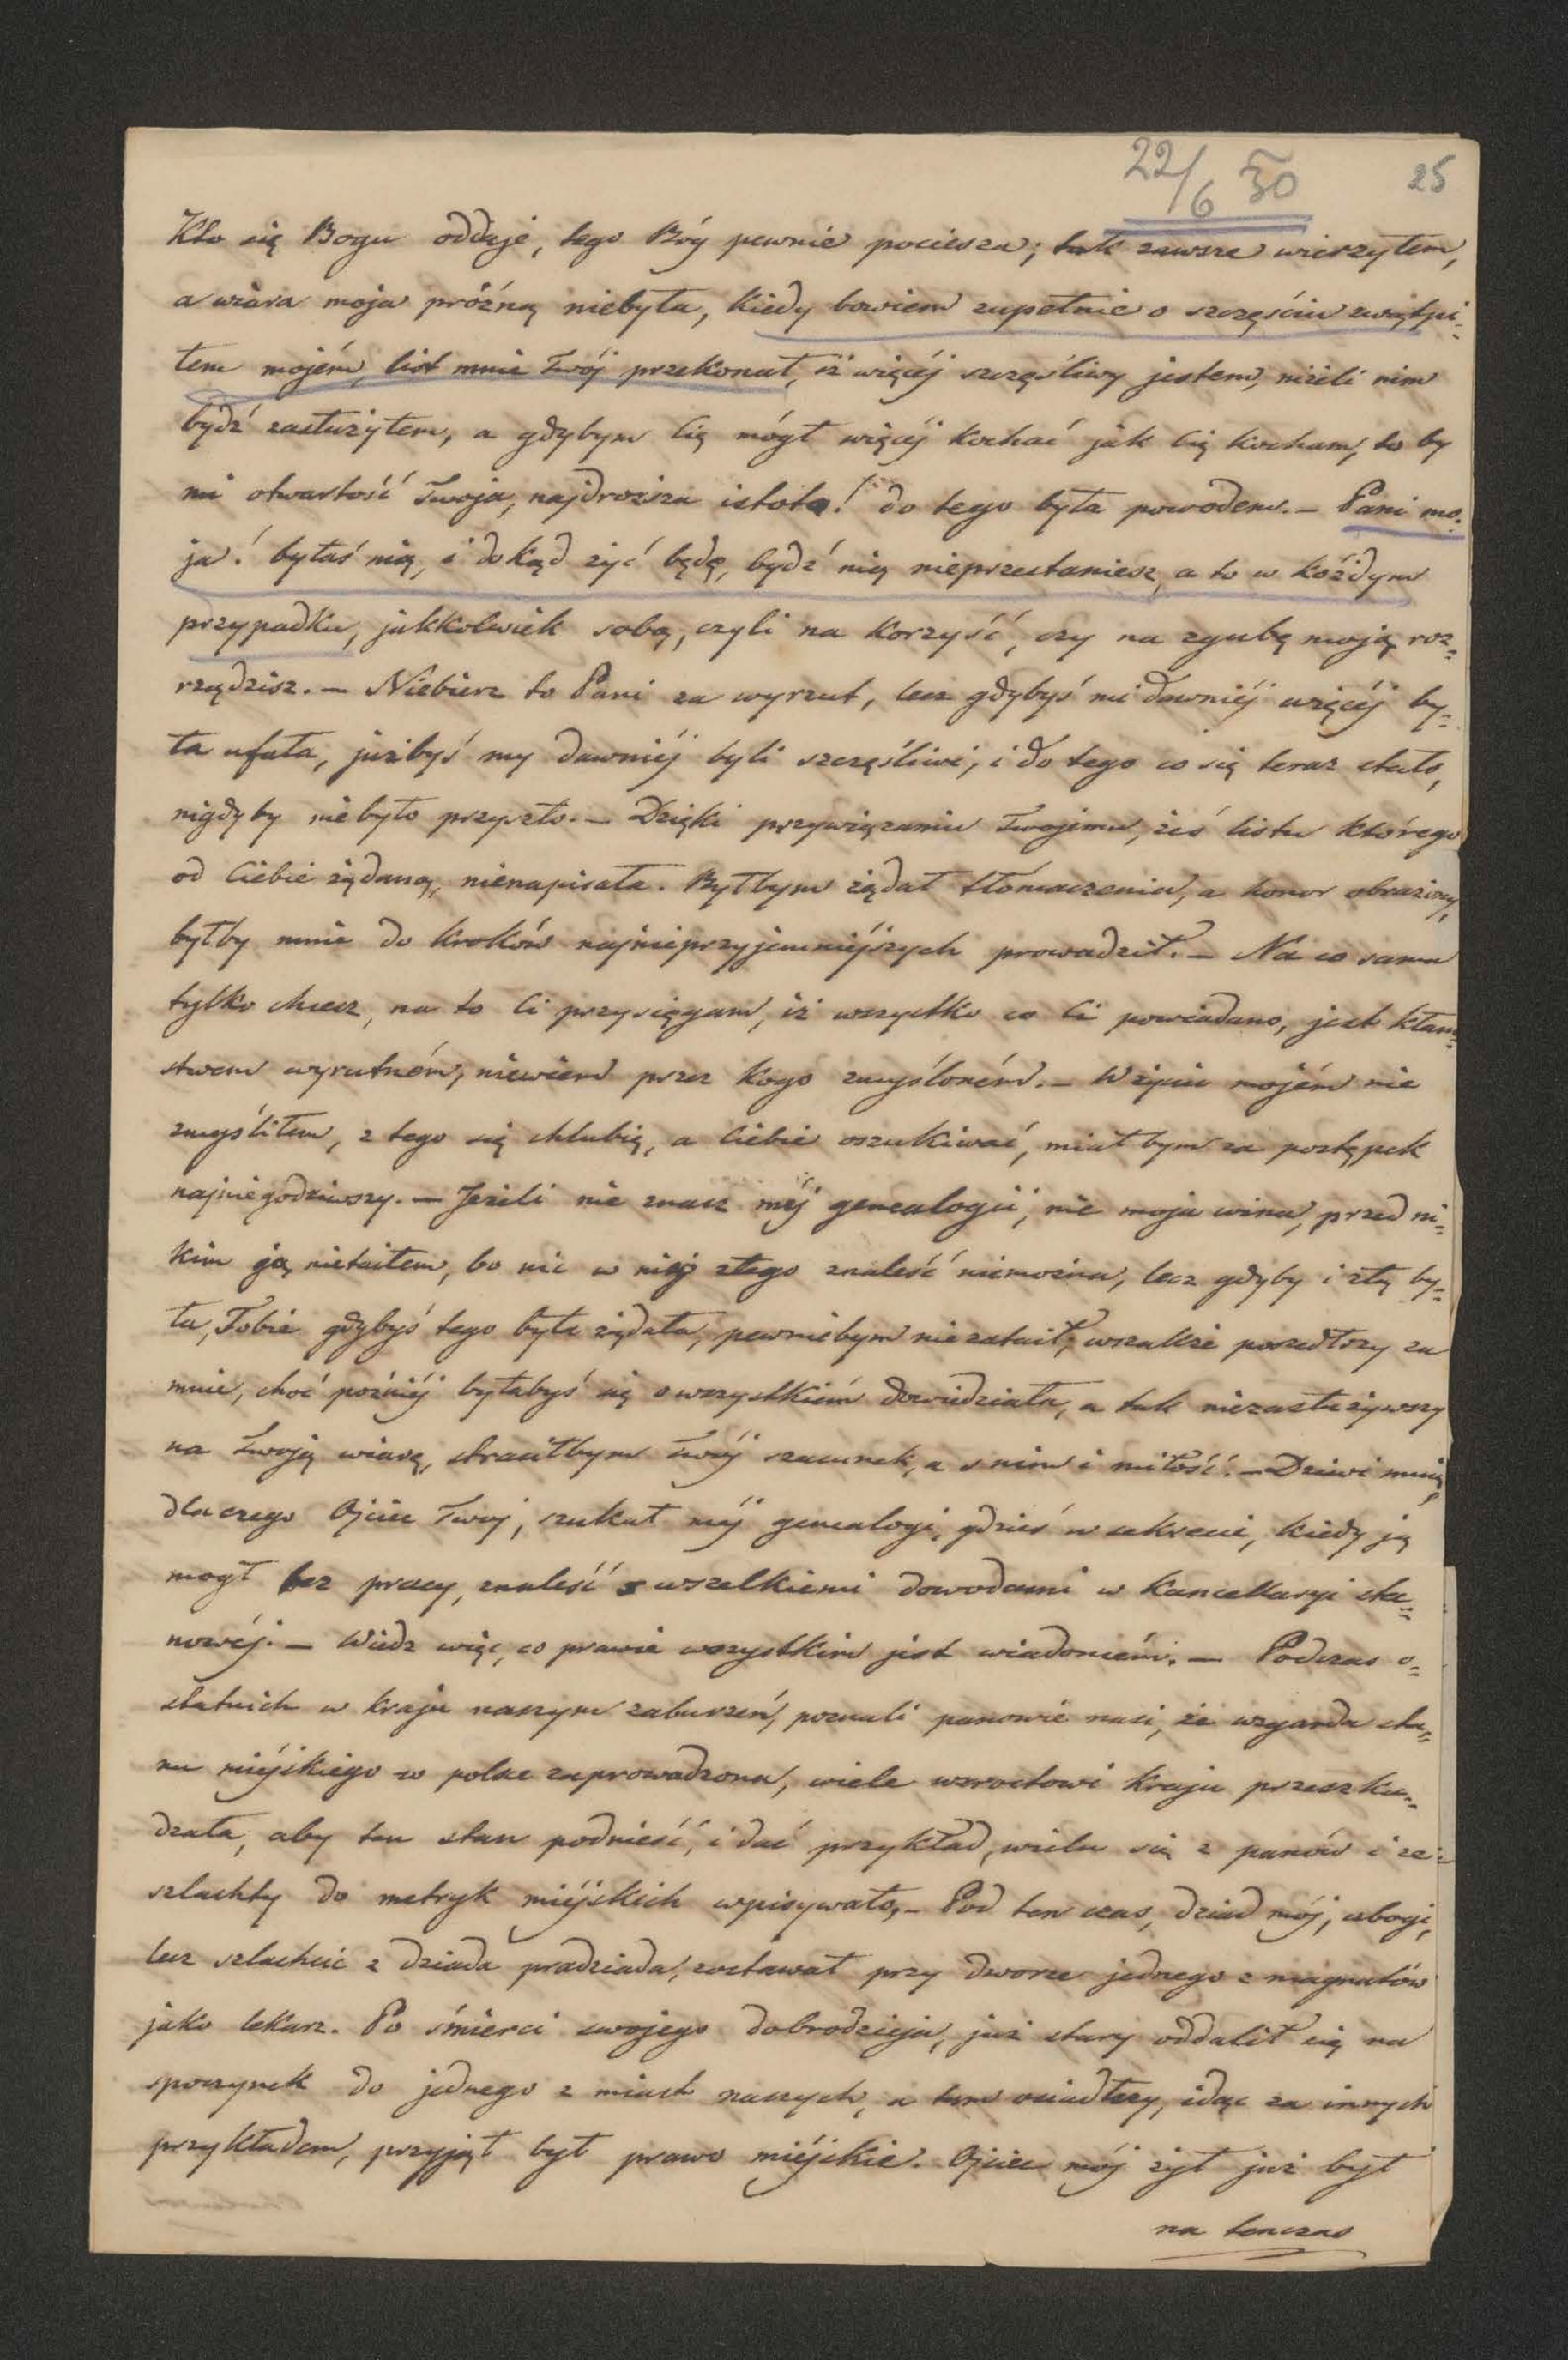 22/6 30
25
Kto się Bogu oddaje, tego Bóg pewnie pociesza; tak zawsze wierzyłem,
a wiara moja próżną niebyła, kiedy bowiem zupełnie o szczęściu zwątpi=
łem mojém, list mnie Twój przekonał, iż więcéj szczęśliwy jestem, niżeli nim
bydź zasłużyłem, a gdybym Cię mógł więcéj kochać jak Cię kocham, to by
mi otwartość Twoja, najdroższa istoto! do tego była powodem. — Pani mo=
ja! byłaś nią, i dokąd żyć będę, bydź nią nieprzestaniesz, a to w każdym
przypadku, jakkolwiek sobą, czyli na korzyść, czy na zgubę moją roz=
rządzisz. — Niebierz to Pani za wyrzut, lecz gdybyś mi dawniéj więcéj by=
ła ufała, jużbyś my dawniéj byli szczęśliwi, i do tego co się teraz stało,
nigdyby niebyło przyszło. — Dzięki przywiązaniu Twojemu, żeś listu którego
od Ciebie żądano, nienapisała. Byłbym żądał tłómaczenia, a honor obrażony,
byłby mnie do kroków najnieprzyjemniéjszych prowadził. — Na co sama
tylko chcesz, na to Ci przysięgam, iż wszystko co Ci powiadano, jest kłam=
stwem wyrutném, niewiem przez kogo zmyśloném. — W życiu mojém nie
zmyśliłem, z tego się chlubię, a Ciebie oszukiwać, miał bym za postępek
najniegodziwszy. — Jeżeli nie znasz méj genealogii, nie moja wina, przed ni=
kim ją nietaiłem, bo nic w niéj złego znaleść niemożna, lecz gdyby i złą by=
ła, Tobie gdybyś tego była żądała, pewniebym nie zataił, wszakże poszedłszy za
mnie, choć poźniéj byłabyś się o wszystkiém dowiedziała, a tak niezasłużywszy
na Twoją wiarę, straciłbym Twój szacunek, a s nim i miłość. — Dziwi mnię
dlaczego Ojciec Twoj, szukał méj genealogi, gdzieś w sekrecie, kiedy ją
mogł bez pracy, znaleść s wszelkiemi dowodami w kancellaryi sta=
nowéj. — Wiedz więc, co prawie wszystkim jest wiadomém. — Podczas o=
statnich w kraju naszym zaburzeń, poznali panowie nasi, że wzgarda sta=
nu miéjskiego w polsce zaprowadzona, wiele wzrostowi kraju przeszka=
dzała, aby ten stan podnieść, i dać przykład, wielu się z panów i ze=
szlachty do metryk miéjskich wpisywało, — Pod ten czas, dziad mój, ubogi,
lecz szlachcic z dziada pradziada, zostawał przy dworze jednego z magnatów
jako lekarz. Po śmierci swojego dobrodzieja, już stary oddalił się na
spoczynek do jednego z miast naszych, a tam osiadłszy, idąc za innych
przykładem, przyjął był prawo miéjskie. Ojciec mój żył już był
na tenczas